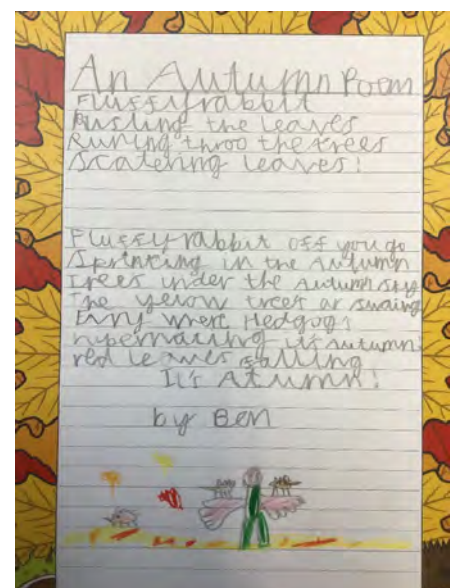 An Autumn Poem
Fluffy rabbit
Rusling the leaves
Runing throo the trees
Scatering leaves!
Fluffy rabbit off you go
Sprinting in the Autumn
trees under the Autumn sky
The yelow trees ar swaing
Evry where Hedgogs
hipernating its Autumn
red leaves falling
It's Atumn!
by Ben